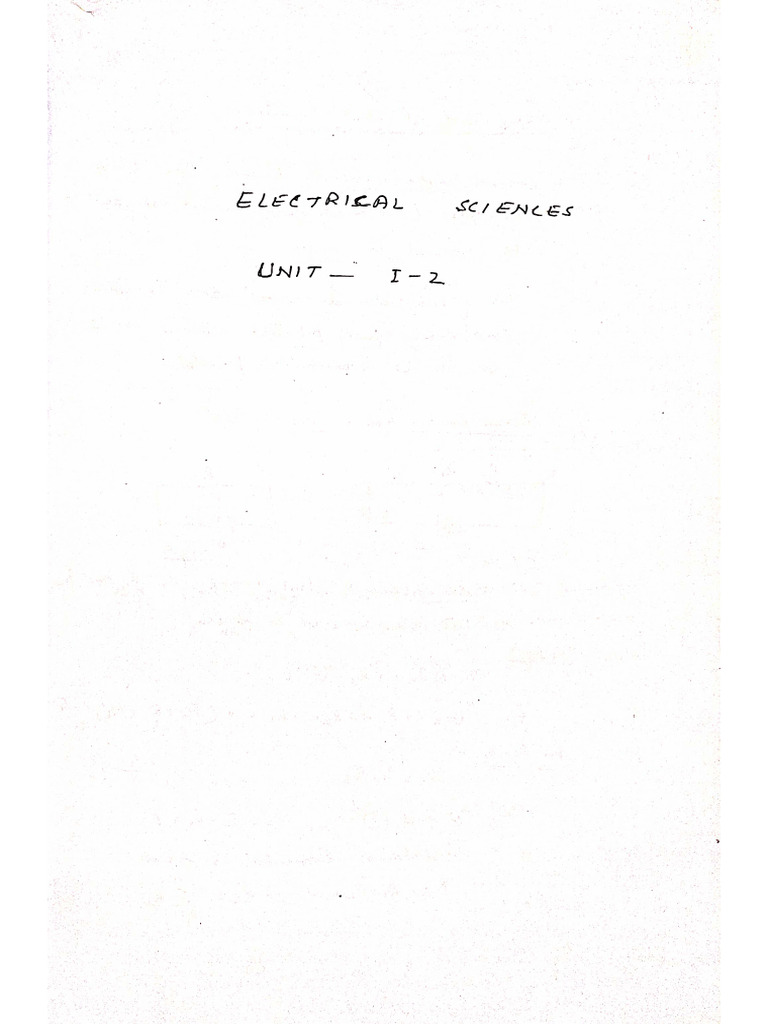 ELECTRICAL SCIENCES
UNIT — I-2